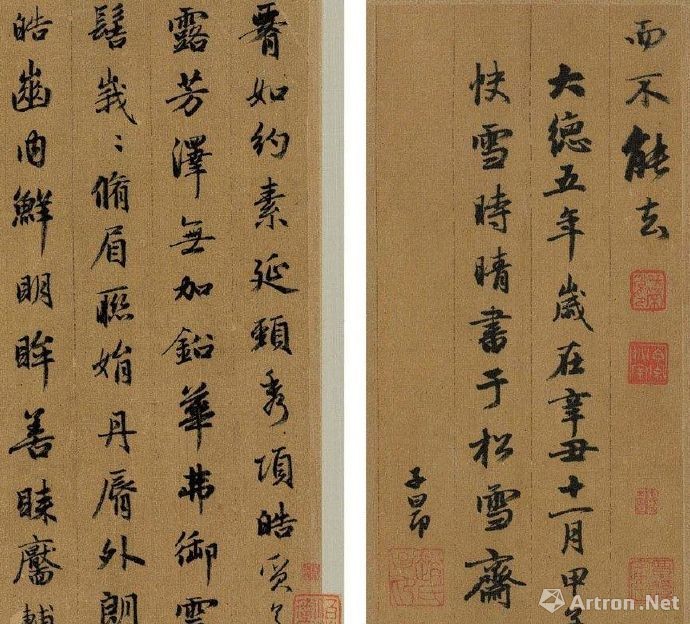 如約素延頸秀項皓質
露芳澤無加鉛華弗御雲
髻峩〻脩眉聯娟丹脣外朗
皓齒内鮮明眸善睞靨輔
而不能去
大德五年歲在辛丑十一月甲子
快雪時晴書于松雪齋
子昂
Artron.Net